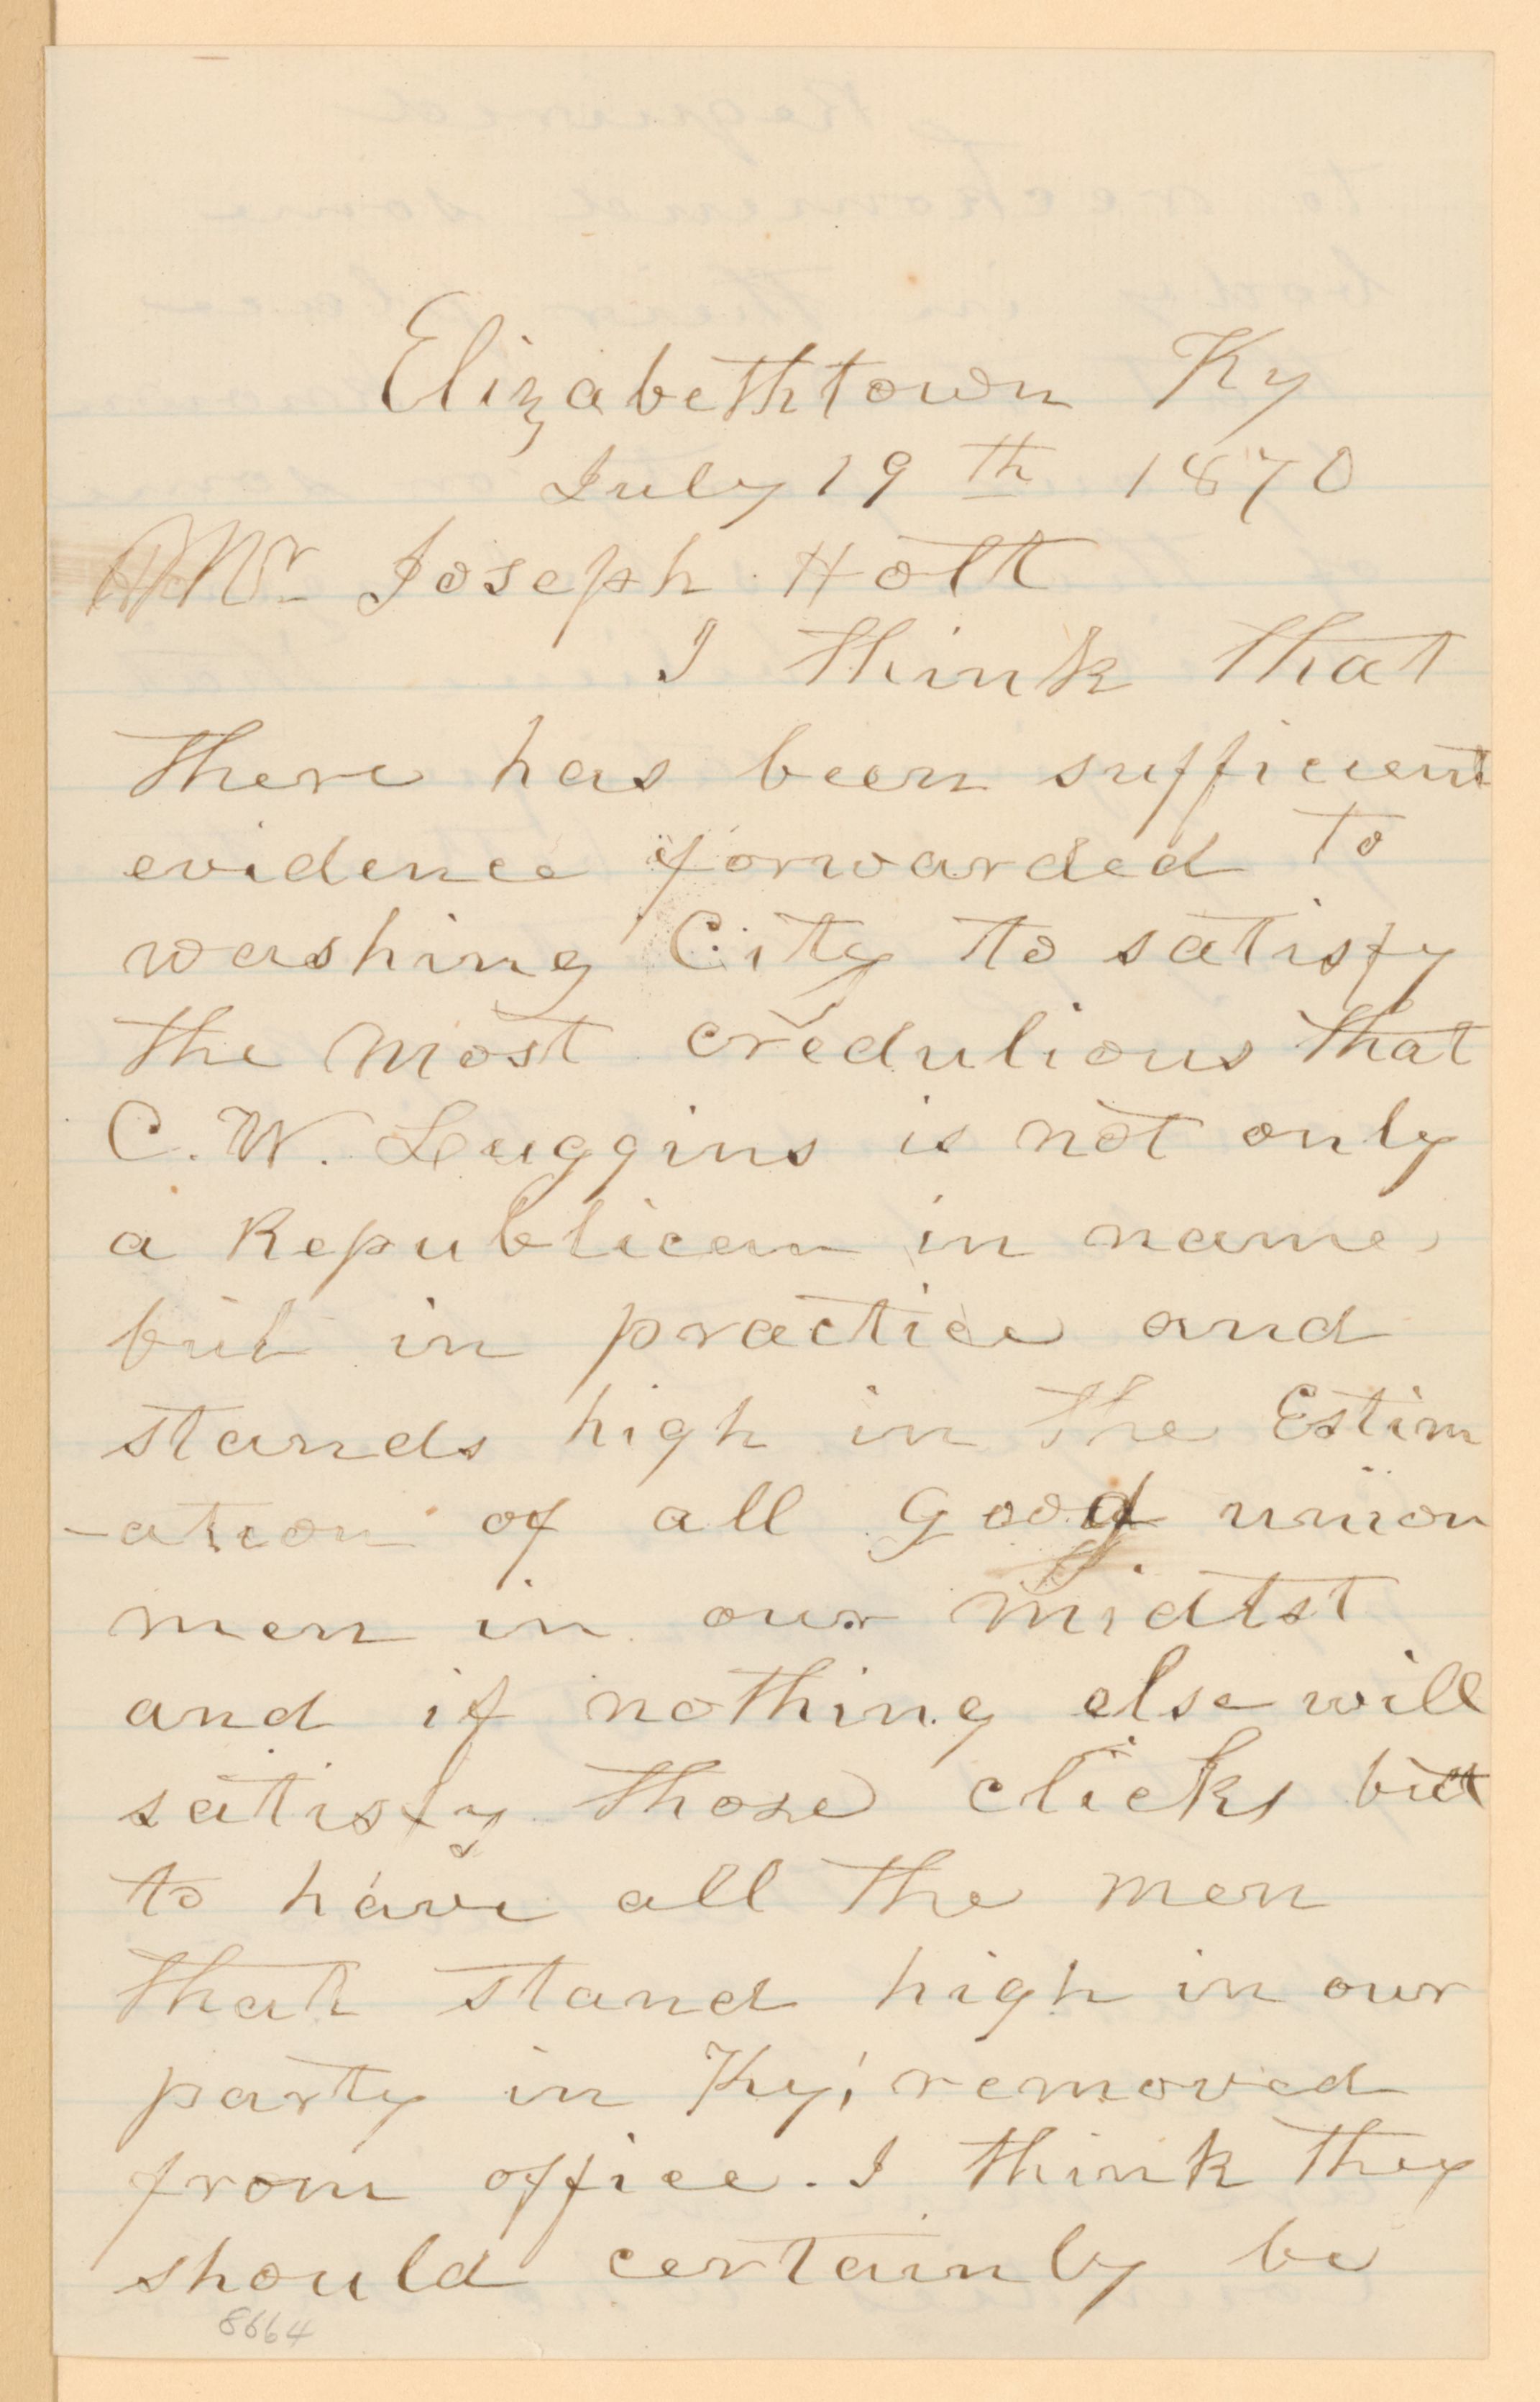 Elizabethtown Ky
July 19th 1870
Mr Joseph Holt
I think that
there has been sufficient
evidence forwarded to
washing City to satisfy
the most credulious that
C. W. Luggins is not only
a Republican in name,
but in practice and
stands high in the Estim
-ation of all good union
men in our midtst
and if nothing else will
satisfy those clicks but
to have all the men
that stand high in our
party in Ky, removed
from office. I think they
should certainly be
8664